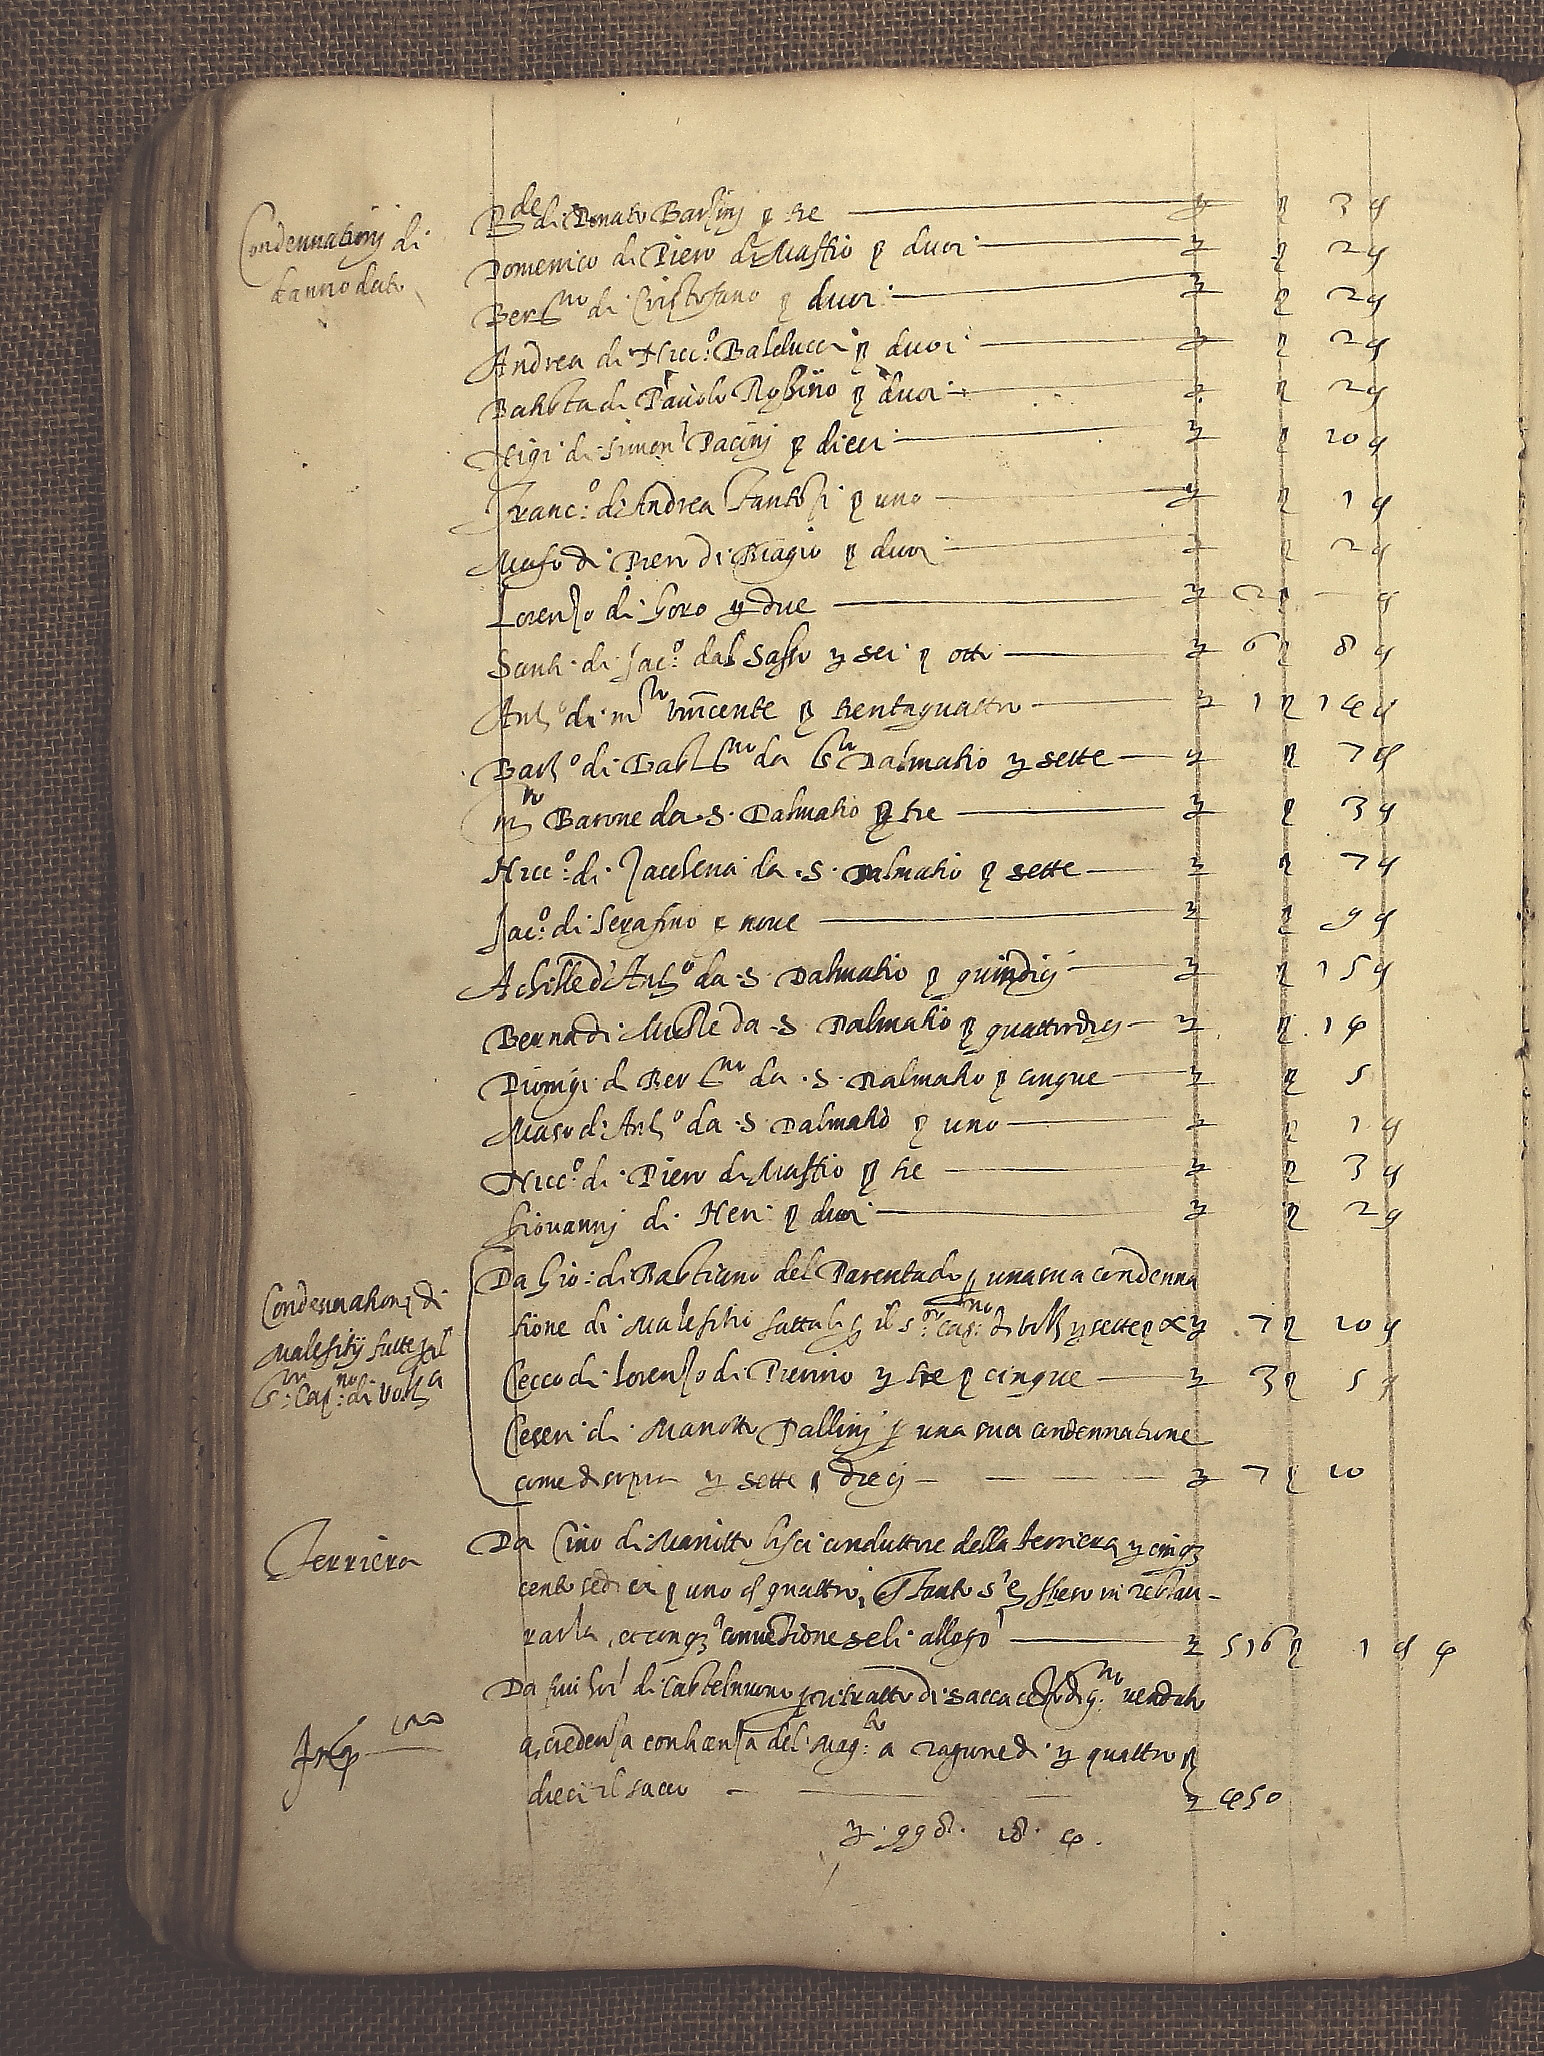 Condennationj di
danno dato
di Donato Barsinj ꝑ tre — 3
Domenico di Piero di Maffio ꝑ duoi — 2
Ber.no di Cristofano ꝑ duoi — 2
Andrea di Nicc.o Balducci ꝑ duoi — 2
di Pauolo ꝑ duoi — 2
di Simon Pacinj ꝑ dieci — 10
Franc.o di Andrea ꝑ uno — 1
Maso di Piero di Biagio ꝑ duoi — 2
Lorenzo di Goro due — 2
Santi di Jac.o dal Sasso sei ꝑ otto — 6 8
Ant.o di m.ro vincente ꝑ trentaquattro — 1 14
Bart.o di da Dalmatio sette — 7
m.ro Barone da S. Dalmatio ꝑ tre — 3
Nicc.o di da S. Dalmatio ꝑ sette — 7
Jac.o di Serafino ꝑ noue — 9
Achille d'Ant.o da S. Dalmatio ꝑ quindicj — 15
Berna di da S. Dalmatio ꝑ quattordicj — 14
Dionigi di Ber.no da S. Dalmatio ꝑ cinque — 5
Maso di Ant.o da S. Dalmatio ꝑ uno — 1
Nicc.o di Piero di Maffio ꝑ tre — 3
Giouannj di Neri ꝑ duoi — 2
Condennationj di
Malefitij fatte ꝑ il
S.r Cap.no di Volt.a
Da Gio: di Bastiano del Parentado ꝑ una sua condenna
tione di Malefitio fattali ꝑ il S.r Cap.no di sette ꝑ — 7 10
Cecco di Lorenzo di Pierino tre ꝑ cinque — 3 5
Ceseri di Mariotto Pallinj ꝑ una sua condennatione
come di sopra sette ꝑ diecj — 7 10
Ferriera
Da Cino di conduttore della ferriera cinq3
cento sedici ꝑ uno quattro,
, et conq3.a conuetione seli allogò — 516 1 4
Da di Castelnuouo ꝑ ritratto di sacca cento di g.no venduto
a credenza con licenza del Mag.to a ragione di quattro ꝑ
dieci il sacco — 450
998. 18. 4.